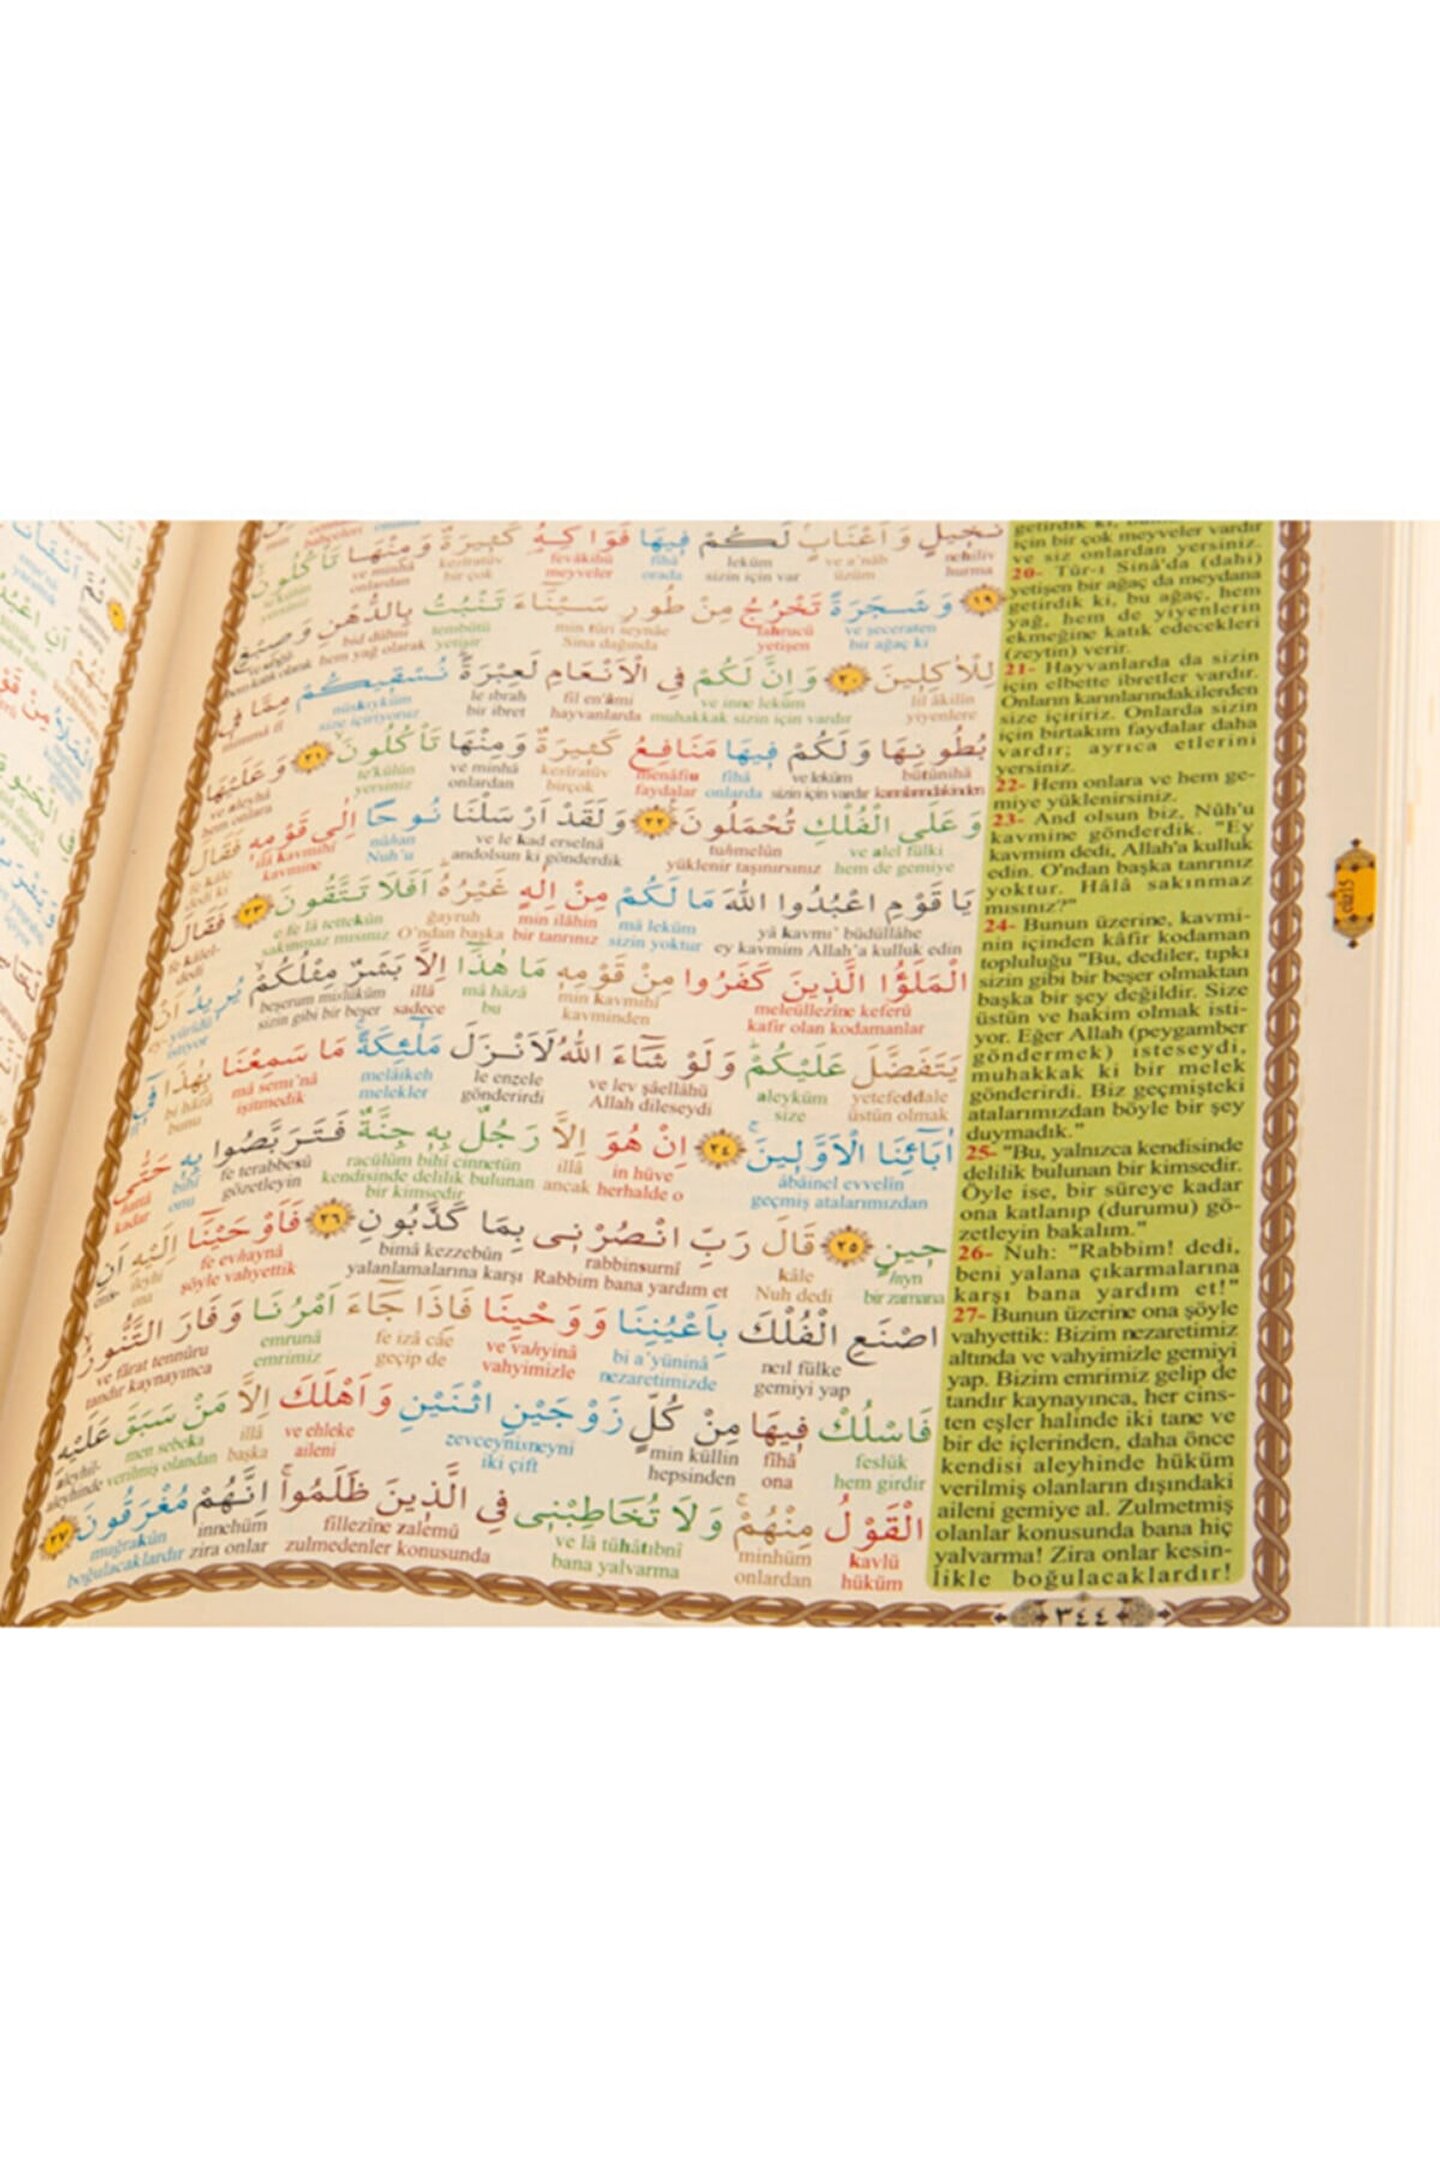 نَخِيلٍ وَاَعْنَابٍ لَكُمْ فِيهَا فَوَاكِهُ كَثِيرَةٌ وَمِنْهَا تَأْكُلُونَ
nehiliv ve a'nâb leküm fîhâ fevâkihü kesîratüv ve minhâ te'külûn
hurma üzüm sizin için var orada meyveler bir çok onlardan yersiniz
﴿١٩﴾ وَشَجَرَةً تَخْرُجُ مِنْ طُورِ سَيْنَٓاءَ تَنْبُتُ بِالدُّهْنِ وَصِبْغٍ
ve şeceraten tahrucü min tûri seynâe tembütü bid dühni ve sıbğıl
bir ağaç ki yetişen Sina dağında yetişir hem yağ olarak hem katık olarak
لِلْاٰكِلِينَ ﴿٢٠﴾ وَاِنَّ لَكُمْ فِي الْاَنْعَامِ لَعِبْرَةً نُسْقِيكُمْ مِمَّا فِي
lil âkilîn ve inne leküm fil en'âmi le ıbrah nüskıyküm mimmâ fî
yiyenlere muhakkak sizin için vardır hayvanlarda bir ibret size içiriyoruz
بُطُونِهَا وَلَكُمْ فِيهَا مَنَافِعُ كَثِيرَةٌ وَمِنْهَا تَأْكُلُونَ ﴿٢١﴾ وَعَلَيْهَا
bütûnihâ ve leküm fîhâ menâfiu kesîratüv ve minhâ te'külûn ve aleyhâ
karınlarındakinden sizin için vardır onlarda faydalar birçok onlardan yersiniz hem onlara
وَعَلَى الْفُلْكِ تُحْمَلُونَ ﴿٢٢﴾ وَلَقَدْ اَرْسَلْنَا نُوحًا اِلٰى قَوْمِهِ فَقَالَ
ve alel fülki tuhmelûn ve le kad erselnâ nûhan ilâ kavmihî fe kâle
hem de gemiye yüklenir taşınırsınız andolsun ki gönderdik Nuh'u kavmine dedi ki
يَا قَوْمِ اعْبُدُوا اللّٰهَ مَا لَكُمْ مِنْ اِلٰهٍ غَيْرُهُ اَفَلَا تَتَّقُونَ ﴿٢٣﴾ فَقَالَ
yâ kavmi' büdüllâhe mâ leküm min ilâhin ğayruh e fe lâ tettekûn fe kâlel-
ey kavmim Allah'a kulluk edin sizin yoktur bir tanrınız O'ndan başka sakınmaz mısınız dedi
الْمَلَؤُا الَّذِينَ كَفَرُوا مِنْ قَوْمِهِ مَا هٰذَا اِلَّا بَشَرٌ مِثْلُكُمْ يُرِيدُ اَنْ
meleüllezîne keferû min kavmihî mâ hâzâ illâ beşerum mislüküm ey- yürîdü
kafir olan kodamanlar kavminden bu sadece sizin gibi bir beşer istiyor
يَتَفَضَّلَ عَلَيْكُمْ وَلَوْ شَٓاءَ اللّٰهُ لَاَنْزَلَ مَلٰٓئِكَةً مَا سَمِعْنَا بِهٰذَا فِٓي
yetefeddale aleyküm ve lev şâellâhü le enzele melâikeh mâ semı'nâ bi hâzâ fî
üstün olmak size Allah dileseydi gönderirdi melekler işitmedik bunu
اٰبَٓائِنَا الْاَوَّلِينَ ﴿٢٤﴾ اِنْ هُوَ اِلَّا رَجُلٌ بِهِ جِنَّةٌ فَتَرَبَّصُوا بِهِ حَتّٰى
âbâinel evvelîn in hüve illâ racülüm bihî cinnetün fe terabbesû bihî hattâ
geçmiş atalarımızdan herhalde o ancak kendisinde delilik bulunan bir kimsedir gözetleyin onu kadar
حِينٍ ﴿٢٥﴾ قَالَ رَبِّ انْصُرْنِي بِمَا كَذَّبُونِ ﴿٢٦﴾ فَاَوْحَيْنَٓا اِلَيْهِ اَنِ
hıyn kâle rabbinsurnî bimâ kezzebûn fe evhaynâ ileyhi enis-
bir zamana Nuh dedi Rabbim bana yardım et yalanlamalarına karşı şöyle vahyettik ona
اصْنَعِ الْفُلْكَ بِاَعْيُنِنَا وَوَحْيِنَا فَاِذَا جَٓاءَ اَمْرُنَا وَفَارَ التَّنُّورُ
neıl fülke bi a'yüninâ ve vahyinâ fe izâ câe emrunâ ve fârat tennûru
gemiyi yap nezaretimizde vahyimizle geçip de emrimiz tandır kaynayınca
فَاسْلُكْ فِيهَا مِنْ كُلٍّ زَوْجَيْنِ اثْنَيْنِ وَاَهْلَكَ اِلَّا مَنْ سَبَقَ عَلَيْهِ
feslük fîhâ min küllin zevceynisneyni ve ehleke illâ men sebeka aleyhil-
hem girdir ona hepsinden iki çift aileni başka verilmiş olandan aleyhinde
الْقَوْلُ مِنْهُمْ وَلَا تُخَاطِبْنِي فِي الَّذِينَ ظَلَمُوا اِنَّهُمْ مُغْرَقُونَ ﴿٢٧﴾
kavlü minhüm ve lâ tühâtıbnî fillezîne zalemû innehüm muğrakûn
hüküm onlardan bana yalvarma zulmedenler konusunda zira onlar boğulacaklardır
için bir çok meyveler vardır
ve siz onlardan yersiniz.
20- Tûr-ı Sinâ'da (dahi)
yetişen bir ağaç da meydana
getirdik ki, bu ağaç, hem
yağ, hem de yiyenlerin
ekmeğine katık edecekleri
(zeytin) verir.
21- Hayvanlarda da sizin
için elbette ibretler vardır.
Onların karınlarındakilerden
size içiririz. Onlarda sizin
için birtakım faydalar daha
vardır; ayrıca etlerini
yersiniz.
22- Hem onlara ve hem ge-
miye yüklenirsiniz.
23- And olsun biz, Nûh'u
kavmine gönderdik. "Ey
kavmim dedi, Allah'a kulluk
edin. O'ndan başka tanrınız
yoktur. Hâlâ sakınmaz
mısınız?"
24- Bunun üzerine, kavmi-
nin içinden kâfir kodaman
topluluğu "Bu, dediler, tıpkı
sizin gibi bir beşer olmaktan
başka bir şey değildir. Size
üstün ve hakim olmak isti-
yor. Eğer Allah (peygamber
göndermek) isteseydi,
muhakkak ki bir melek
gönderirdi. Biz geçmişteki
atalarımızdan böyle bir şey
duymadık."
25- "Bu, yalnızca kendisinde
delilik bulunan bir kimsedir.
Öyle ise, bir süreye kadar
ona katlanıp (durumu) gö-
zetleyin bakalım."
26- Nuh: "Rabbim! dedi,
beni yalana çıkarmalarına
karşı bana yardım et!"
27- Bunun üzerine ona şöyle
vahyettik: Bizim nezaretimiz
altında ve vahyimizle gemiyi
yap. Bizim emrimiz gelip de
tandır kaynayınca, her cins-
ten eşler halinde iki tane ve
bir de içlerinden, daha önce
kendisi aleyhinde hüküm
verilmiş olanların dışındaki
aileni gemiye al. Zulmetmiş
olanlar konusunda bana hiç
yalvarma! Zira onlar kesin-
likle boğulacaklardır!
٣٤٤